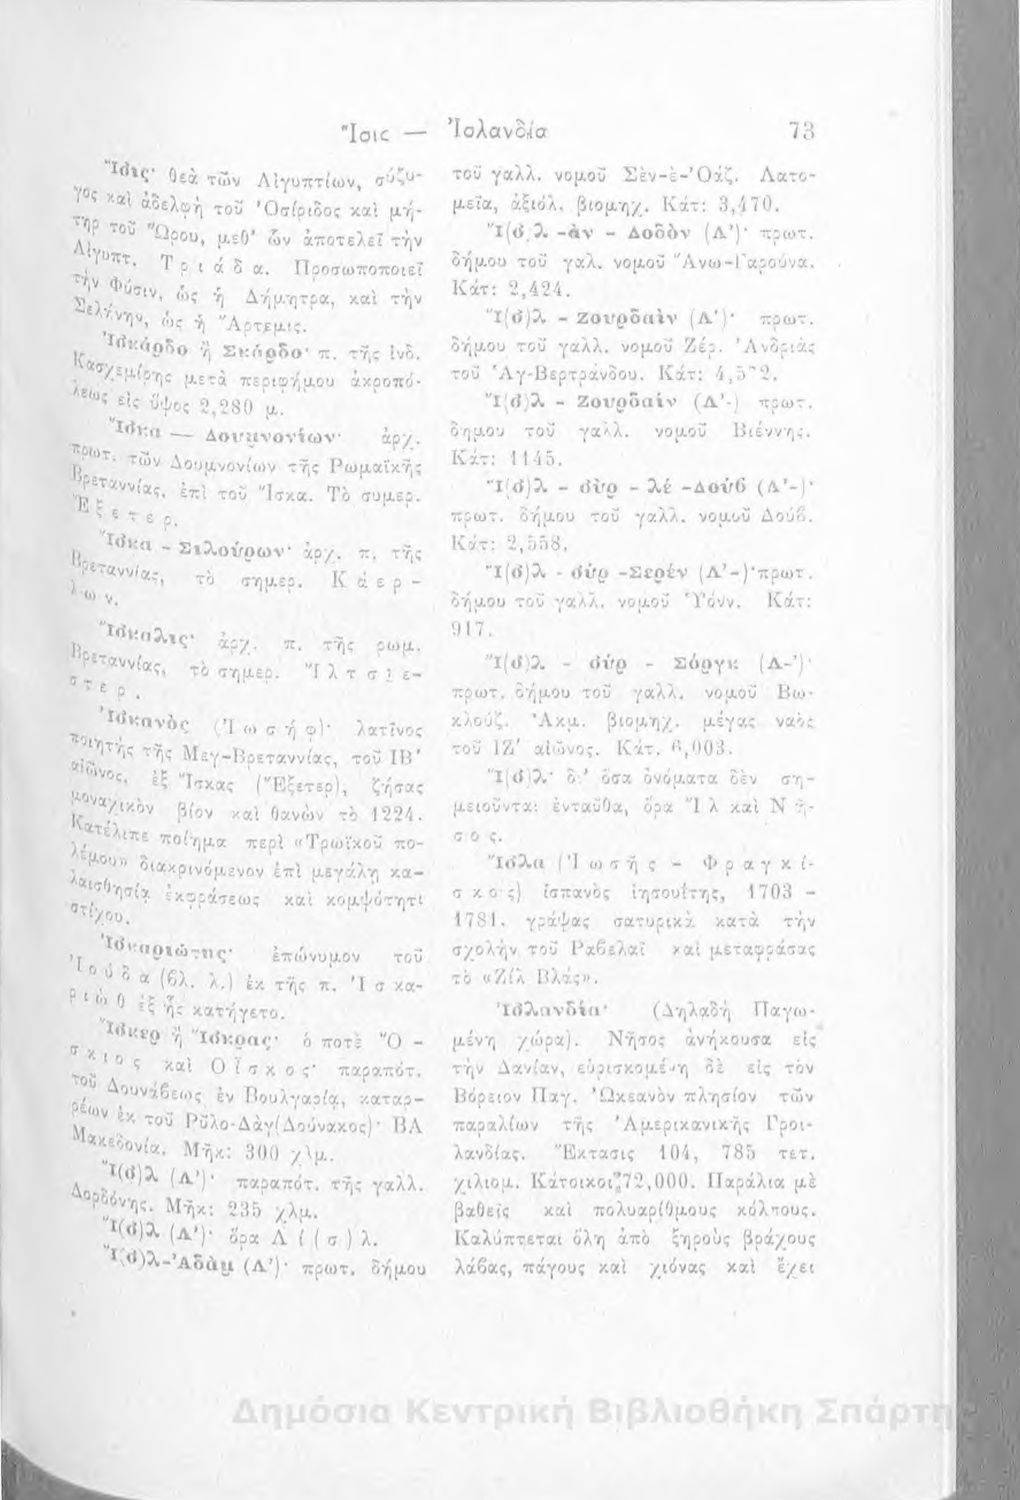 Ἴσις — Ἰσλανδία 73
Ἴσις· θεὰ τῶν Αἰγυπτίων, σύζυ-
γος καὶ ἀδελφὴ τοῦ Ὀσίριδος καὶ μή-
τηρ τοῦ Ὥρου, μεθ' ὧν ἀποτελεῖ τὴν
Αἰγυπτ. Τριάδα. Προσωποποιεῖ
τὴν Φύσιν, ὡς ἡ Δήμητρα, καὶ τὴν
Σελήνην, ὡς ἡ Ἄρτεμις.
Ἰσκάρδο ἢ Σκάρδο· π. τῆς ἰνδ.
Κασχεμίρης μετὰ περιφήμου ἀκροπό-
λεως εἰς ὕψος 2,280 μ.
Ἴσκα — Δουμνονίων· ἀρχ.
πρωτ. τῶν Δουμνονίων τῆς Ρωμαϊκῆς
Βρεταννίας, ἐπὶ τοῦ Ἴσκα. Τὸ σημερ.
Ἔξετερ.
Ἴσκα - Σιλούρων· ἀρχ. π. τῆς
Βρεταννίας, τὸ σημερ. Κάερ-
λων.
Ἴσκαλις· ἀρχ. π. τῆς ρωμ.
Βρεταννίας, τὸ σημερ. Ἴλτσιε-
στερ.
Ἰσκανὸς (Ἰωσήφ)· λατῖνος
ποιητὴς τῆς Μεγ-Βρεταννίας, τοῦ ΙΒ'
αἰῶνος, ἐξ Ἴσκας (Ἔξετερ), ζήσας
μοναχικὸν βίον καὶ θανὼν τὸ 1224.
Κατέλιπε ποίημα περὶ «Τρωϊκοῦ πο-
λέμου» διακρινόμενον ἐπὶ μεγάλῃ κα-
λαισθησίᾳ ἐκφράσεως καὶ κομψότητι
στίχου.
Ἰσκαριώτης· ἐπώνυμον τοῦ
Ἰούδα (βλ. λ.) ἐκ τῆς π. Ἰσκα-
ριὼθ ἐξ ἧς κατήγετο.
Ἴσκερ ἢ Ἴσκρας· ὁ ποτὲ Ὄ-
σκιος καὶ Οἴσκος· παραπότ.
τοῦ Δουνάβεως ἐν Βουλγαρίᾳ, καταρ-
ρέων ἐκ τοῦ Ρῦλο-Δὰγ(Δούνακος)· ΒΑ
Μακεδονία. Μῆκ: 300 χλμ.
Ἴ(σ)λ (Λ')· παραπότ. τῆς γαλλ.
Δορδόνης. Μῆκ: 235 χλμ.
Ἴ(σ)λ (Λ')· ὅρα Λί(σ)λ.
Ἴ(σ)λ-Ἀδὰμ (Λ')· πρωτ. δήμου
τοῦ γαλλ. νομοῦ Σὲν-ὲ-Ὀάζ. Λατο-
μεῖα, ἀξιόλ. βιομηχ. Κάτ: 3,470.
Ἴ(σ)λ -ὰν - Δοδὸν (Λ')· πρωτ.
δήμου τοῦ γαλ. νομοῦ Ἄνω-Γαρούνα.
Κάτ: 2,424.
Ἴ(σ)λ - Ζουρδαὶν (Λ')· πρωτ.
δήμου τοῦ γαλλ. νομοῦ Ζέρ. Ἀνδριὰς
τοῦ Ἁγ-Βερτράνδου. Κάτ:
Ἴ(σ)λ - Ζουρδαίν (Λ'-) πρωτ.
δημου τοῦ γαλλ. νομοῦ Βιέννης.
Κάτ: 1145.
Ἴ(σ)λ - σὺρ - λέ -Δούβ (Λ'-)·
πρωτ. δήμου τοῦ γαλλ. νομοῦ Δούβ.
Κάτ: 2,558.
Ἴ(σ)λ - σύρ -Σερέν (Λ'-)·πρωτ.
δήμου τοῦ γαλλ. νομοῦ Ὑόνν. Κάτ:
917.
Ἴ(σ)λ - σύρ - Σόργκ (Λ-')·
πρωτ. δήμου τοῦ γαλλ. νομοῦ Βω-
κλούζ. Ἀκμ. βιομηχ. μέγας ναὸς
τοῦ ΙΖ' αἰῶνος. Κάτ. 6,003.
Ἴ(σ)λ· δι' ὅσα ὀνόματα δὲν ση-
μειοῦνται ἐνταῦθα, ὅρα Ἴλ καὶ Νῆ-
σος.
Ἴσλα (Ἰωσὴς - Φραγκί-
σκος) ἱσπανὸς ἰησουίτης, 1703 -
1781. γράψας σατυρικὰ κατὰ τὴν
σχολὴν τοῦ Ραβελαὶ καὶ μεταφράσας
τὸ «Ζὶλ Βλάς».
Ἰσλανδία· (Δηλαδὴ Παγω-
μένη χώρα). Νῆσος ἀνήκουσα εἰς
τὴν Δανίαν, εὑρισκομένη δὲ εἰς τὸν
Βόρειον Παγ. Ὠκεανὸν πλησίον τῶν
παραλίων τῆς Ἀμερικανικῆς Γροι-
λανδίας. Ἔκτασις 104, 785 τετ.
χιλιομ. Κάτοικοι 72,000. Παράλια μὲ
βαθεῖς καὶ πολυαρίθμους κόλπους.
Καλύπτεται ὅλη ἀπὸ ξηροὺς βράχους
λάβας, πάγους καὶ χιόνας καὶ ἔχει
Δημόσια Κεντρική Βιβλιοθήκη Σπάρτη